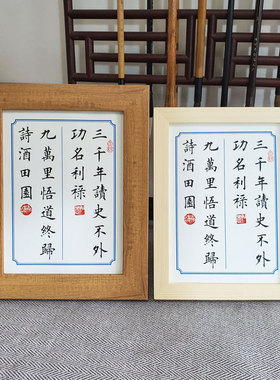 三千年讀史不外
功名利祿
九萬里悟道終歸
詩酒田園
三千年讀史不外
功名利祿
九萬里悟道終歸
詩酒田園